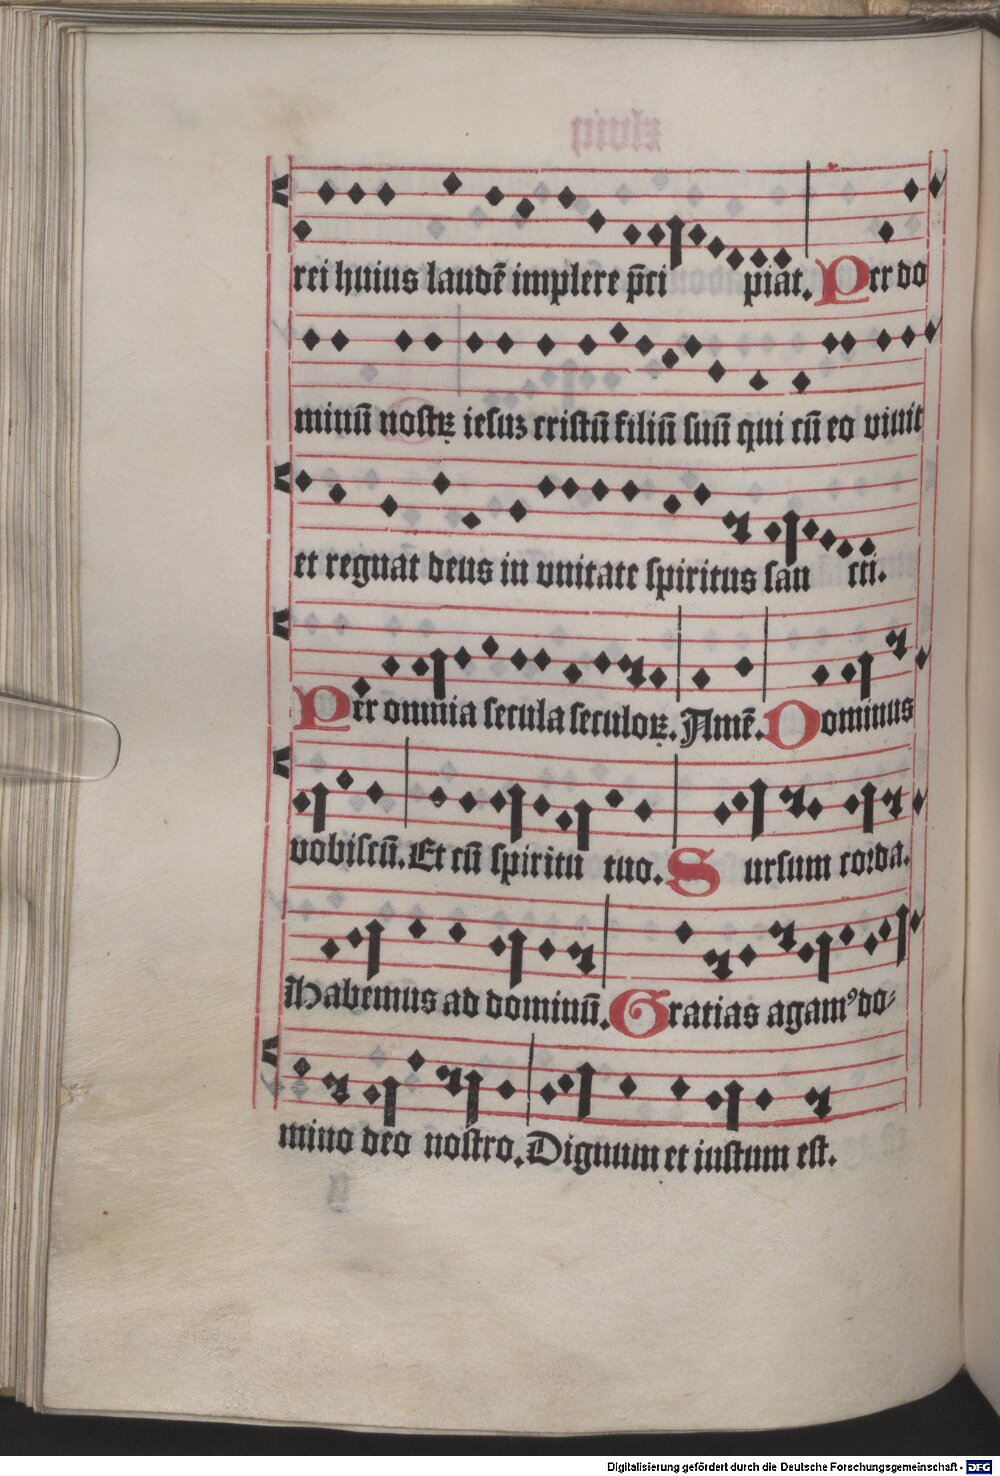 rei huius laudē implere p̄ci piat. Per do
minū nostꝝ iesuꝫ cristū filiū suū qui cū eo viuit
et regnat deus in vnitate spiritus san cti.
Per omnia secula seculoꝝ. Amē. Dominus
vobiscū. Et cū spiritu tuo. Sursum corda.
Habemus ad dominū. Gratias agamꝰ do⸗
mino deo nostro. Dignum et iustum est.
Digitalisierung gefördert durch die Deutsche Forschungsgemeinschaft - DFG